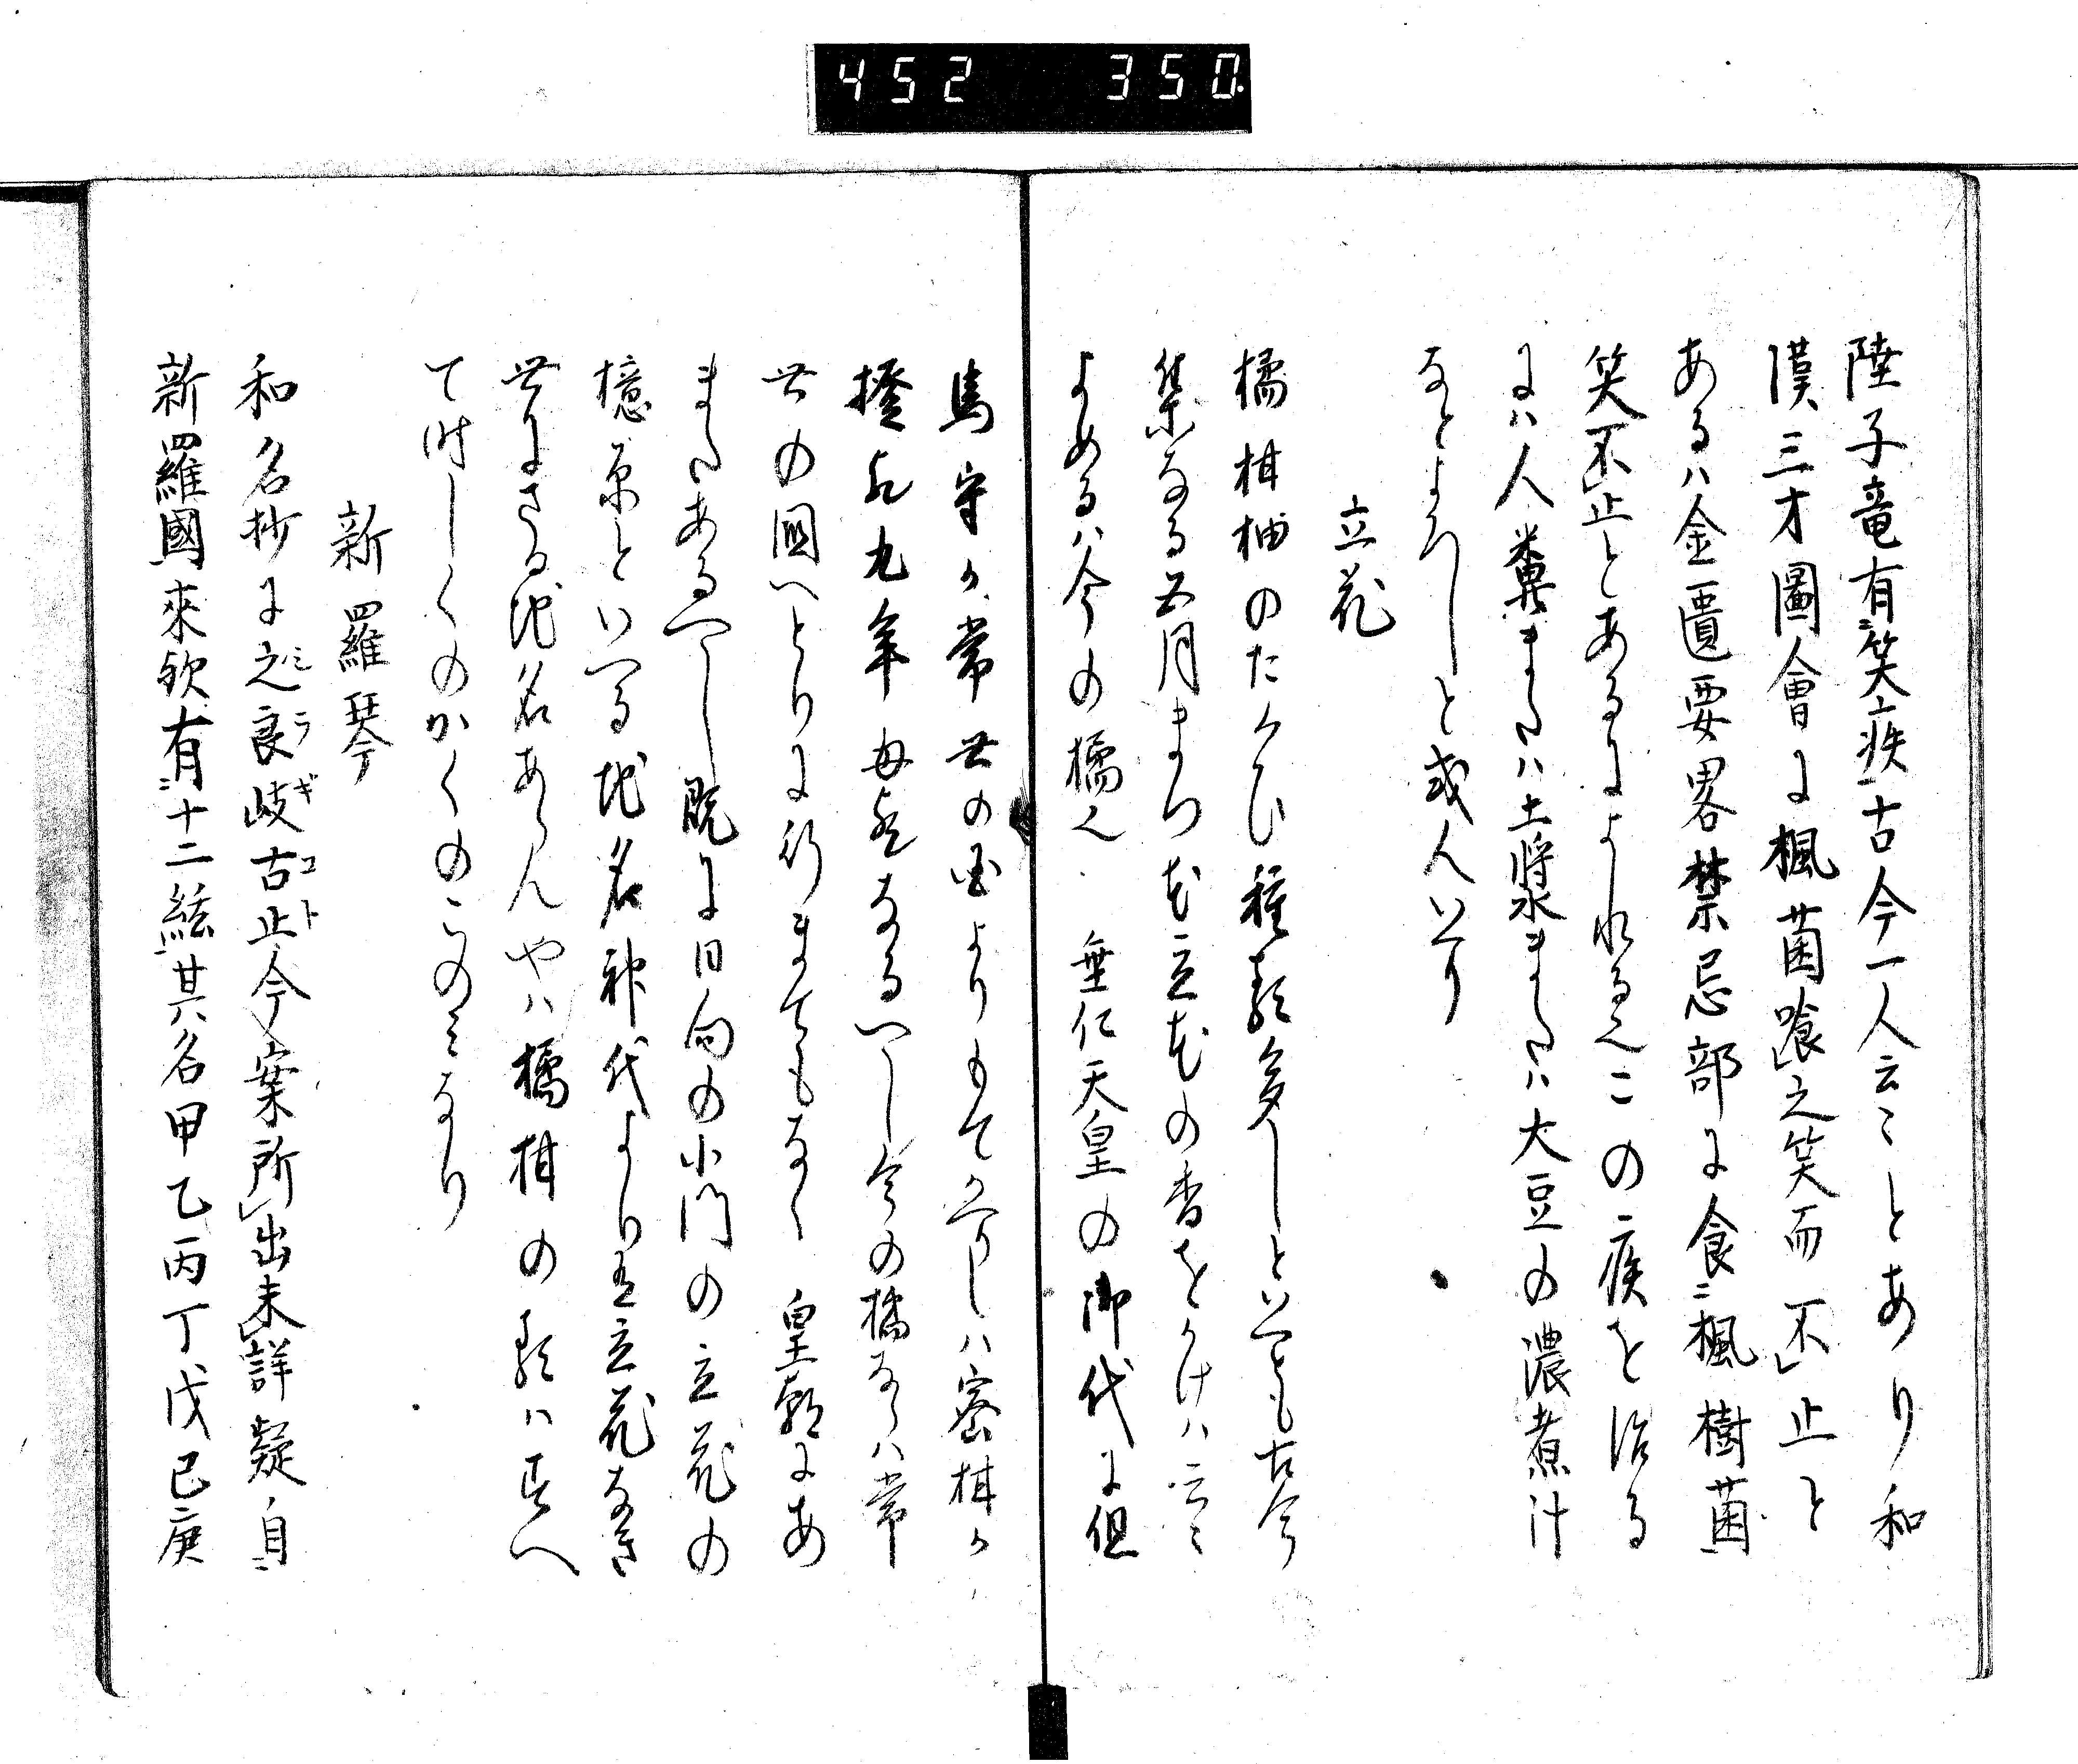 452 350
陸子竜有笑疾古今一人云〻とあり和
漢三才圖會に楓菌喰之笑而不止と
あるハ金匱要畧禁忌部に食楓樹菌
笑不止とあるによれる也この疾を治る
にハ人糞またハ土漿またハ大豆の濃煮汁
なとよろしと或人いへり
立花
橘柑柚のたくひ種類多しといへとも古今
集なる五月まつ花立花の香をかけハ云〻
よめるハ今の橘也 垂仁天皇の御代に但
馬守か常世の国よりもてかへりしハ蜜柑か
橙 九年母 なるへし今の橘ならハ常
世の國へとりに行まてもなく 皇朝にあ
またあるへし既に日向の小門の立花の
檍原といへる地名神代よりも立花なき
世にさる地名あらんやハ橘柑の類ハすへ
て時しくのかくのこのみなり
新羅琴
和名抄に之良岐古止今案所出未詳疑自
シラギコト
新羅國來欤有十二絃其名甲乙丙丁戊己庚